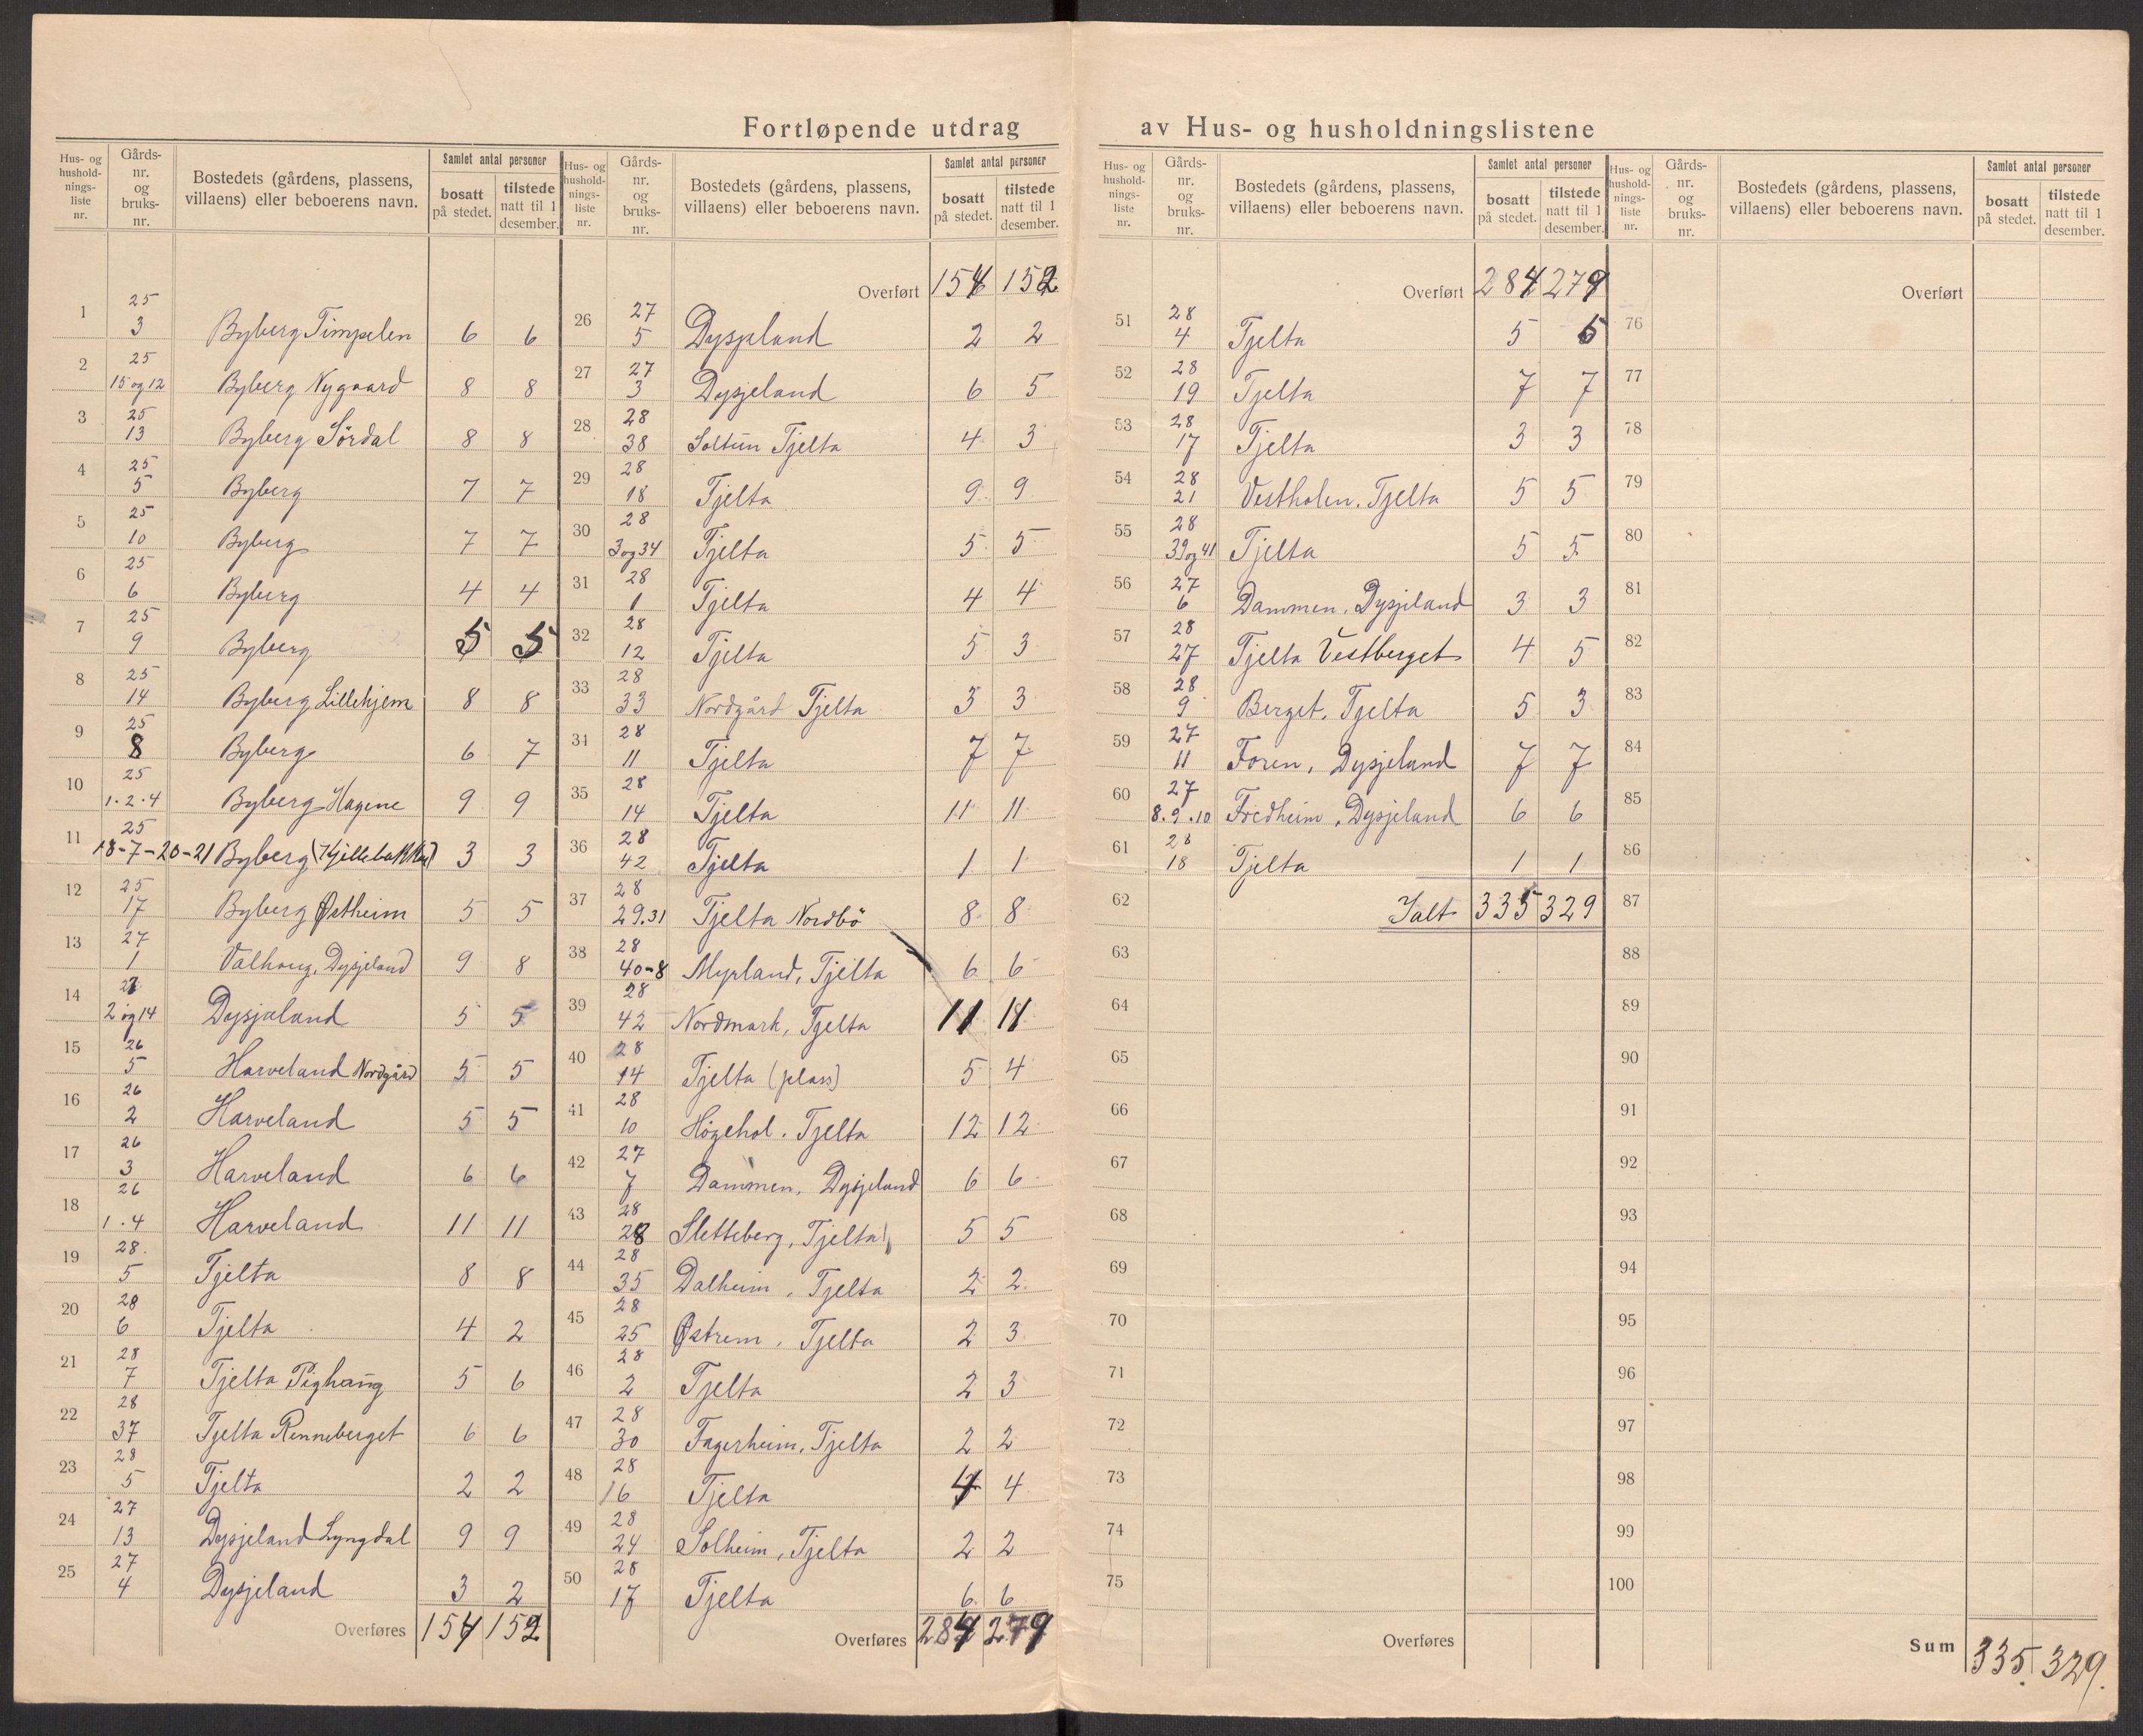 Fortløpende utdrag av Hus- og husholdningslistene
Hus- og husholdningsliste nr. | Gårds-nr. og bruks-nr. | Bostedets (gårdens, plassens, villaens) eller beboerens navn. | Samlet antal personer: bosatt på stedet. | tilstede natt til 1 desember.
1 | 25 3 | Byberg Timpelen | 6 | 6
2 | 25 15 og 12 | Byberg Nygaard | 8 | 8
3 | 25 13 | Byberg Sördal | 8 | 8
4 | 25 5 | Byberg | 7 | 7
5 | 25 10 | Byberg | 7 | 7
6 | 25 6 | Byberg | 4 | 4
7 | 25 9 | Byberg | 5 | 5
8 | 25 14 | Byberg Lillehjem | 8 | 8
9 | 25 8 | Byberg | 6 | 7
10 | 25 1.2.4 | Byberg Hagene | 9 | 9
11 | 25 18-7-20-21 | Byberg (Kjillebakka) | 3 | 3
12 | 25 17 | Byberg Østheim | 5 | 5
13 | 27 1 | Valhaug, Dysjeland | 9 | 8
14 | 27 2 og 14 | Dysjeland | 5 | 5
15 | 26 5 | Harveland Nordgård | 5 | 5
16 | 26 2 | Harveland | 5 | 5
17 | 26 3 | Harveland | 6 | 6
18 | 26 1.4 | Harveland | 11 | 11
19 | 28. 5 | Tjelta | 8 | 8
20 | 28 6 | Tjelta | 4 | 2
21 | 28 7 | Tjelta Pighaug | 5 | 6
22 | 28 37 | Tjelta Renneberget | 6 | 6
23 | 28 5 | Tjelta | 2 | 2
24 | 27 13 | Dysjeland Lyngdal | 9 | 9
25 | 27 4 | Dysjeland | 3 | 2
Overføres 154 152
Hus- og husholdningsliste nr. | Gårds-nr. og bruks-nr. | Bostedets (gårdens, plassens, villaens) eller beboerens navn. | Samlet antal personer: bosatt på stedet. | tilstede natt til 1 desember.
Overført 154 152
26 | 27 5 | Dysjeland | 2 | 2
27 | 27 3 | Dysjeland | 6 | 5
28 | 28 38 | Soltun Tjelta | 4 | 3
29 | 28 18 | Tjelta | 9 | 9
30 | 28 3 og 34 | Tjelta | 5 | 5
31 | 28 1 | Tjelta | 4 | 4
32 | 28 12 | Tjelta | 5 | 3
33 | 28 33 | Nordgård Tjelta | 3 | 3
34 | 28 11 | Tjelta | 7 | 7
35 | 28 14 | Tjelta | 11 | 11
36 | 28 42 | Tjelta | 1 | 1
37 | 28 29.31 | Tjelta Nordbö | 8 | 8
38 | 28 40-8 | Myrland, Tjelta | 6 | 6
39 | 28 42 | Nordmark, Tjelta | 11 | 11
40 | 28 14 | Tjelta (plass) | 5 | 4
41 | 28 10 | Högehol. Tjelta | 12 | 12
42 | 27 7 | Dammen, Dysjeland | 6 | 6
43 | 28 28 | Sletteberg, Tjelta | 5 | 5
44 | 28 35 | Dalheim, Tjelta | 2 | 2
45 | 28 25 | Østrem, Tjelta | 2 | 3
46 | 28 2 | Tjelta | 2 | 3
47 | 28 30 | Fagerheim, Tjelta | 2 | 2
48 | 28 16 | Tjelta | 4 | 4
49 | 28 24 | Solheim, Tjelta | 2 | 2
50 | 28 17 | Tjelta | 6 | 6
Overføres 284 279
Hus- og husholdningsliste nr. | Gårds-nr. og bruks-nr. | Bostedets (gårdens, plassens, villaens) eller beboerens navn. | Samlet antal personer: bosatt på stedet. | tilstede natt til 1 desember.
Overført 284 279
51 | 28 4 | Tjelta | 5 | 5
52 | 28 19 | Tjelta | 7 | 7
53 | 28 17 | Tjelta | 3 | 3
54 | 28 21 | Vestholen. Tjelta | 5 | 5
55 | 28 39 og 41 | Tjelta | 5 | 5
56 | 27 6 | Dammen, Dysjeland | 3 | 3
57 | 28 27 | Tjelta Vestberget | 4 | 5
58 | 28 9 | Berget, Tjelta | 5 | 3
59 | 27 11 | Foren, Dysjeland | 7 | 7
60 | 27 8.9.10 | Fredheim, Dysjeland | 6 | 6
61 | 28 18 | Tjelta | 1 | 1
62 | Ialt | 335 | 329
63
64
65
66
67
68
69
70
71
72
73
74
75
Overføres
Hus- og husholdningsliste nr. | Gårds-nr. og bruks-nr. | Bostedets (gårdens, plassens, villaens) eller beboerens navn. | Samlet antal personer: bosatt på stedet. | tilstede natt til 1 desember.
Overført
76
77
78
79
80
81
82
83
84
85
86
87
88
89
90
91
92
93
94
95
96
97
98
99
100
Sum 335. 329.